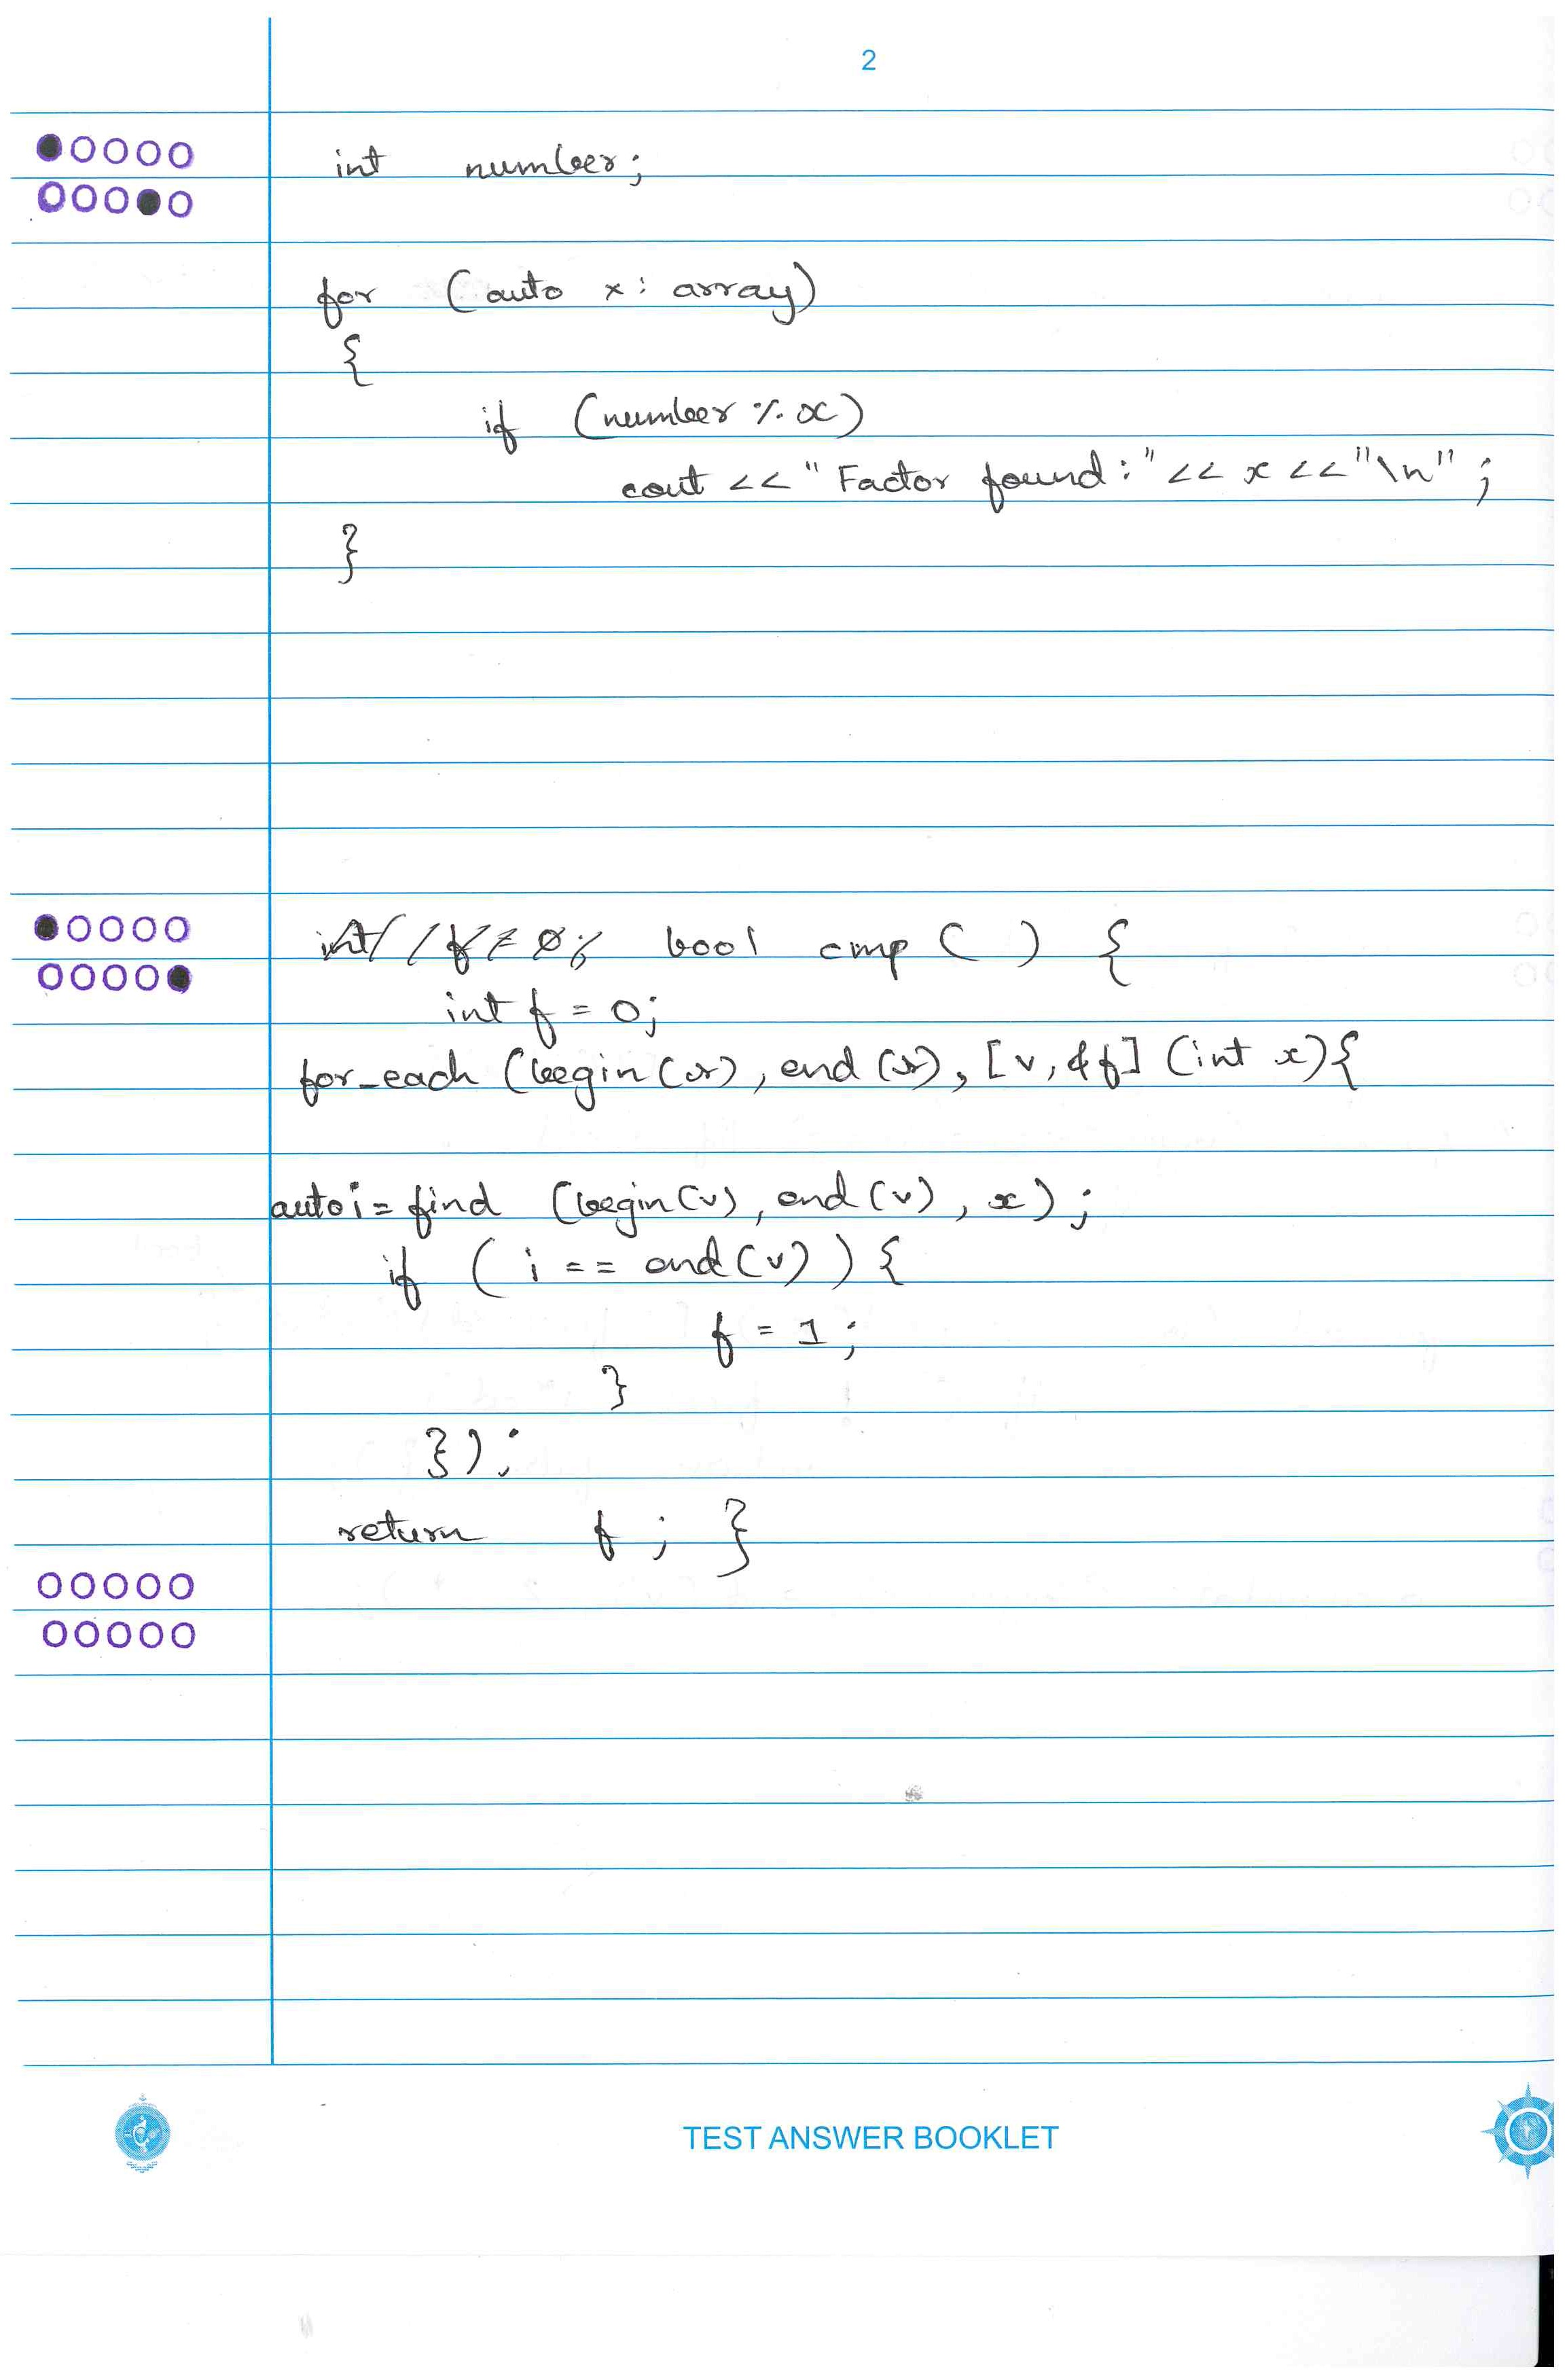 2
int number;
for (auto x : array)
{
if (number % x)
cout << "Factor found:" << x << "\n" ;
}
bool cmp ( ) {
int f = 0;
for_each (begin(r), end(r), [v, &f] (int x) {
auto i = find (begin(v), end(v), x) ;
if ( i == end(v) ) {
f = 1 ;
}
});
return f ; }
TEST ANSWER BOOKLET